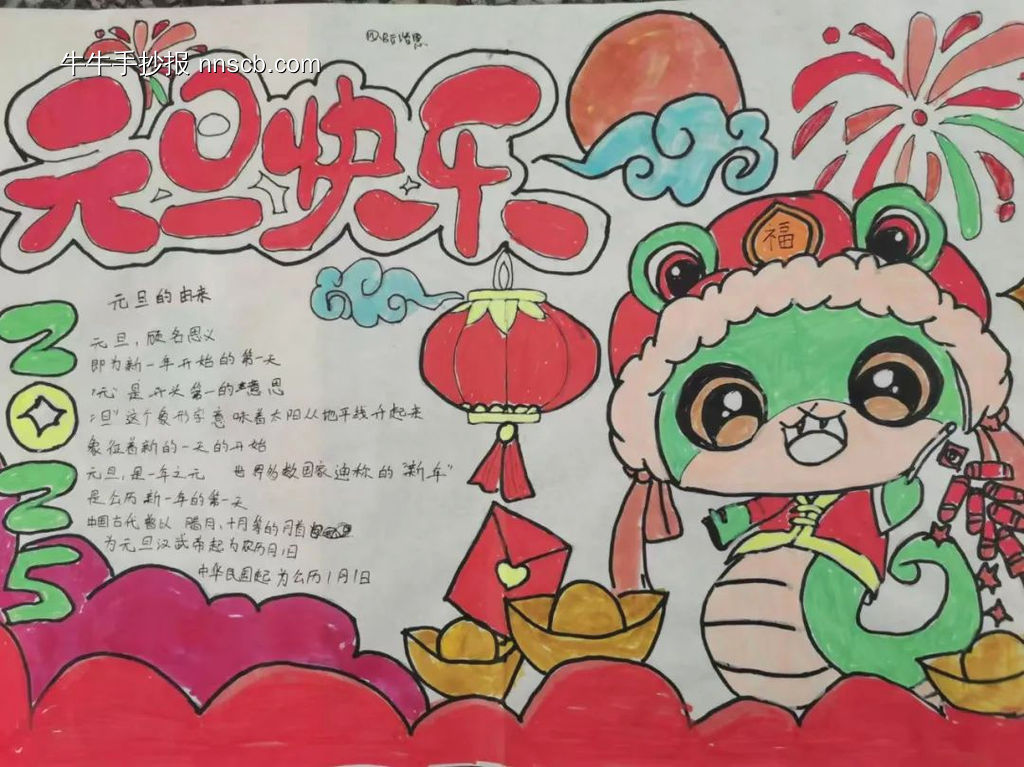 牛牛手抄报 nnscb.com
元旦快乐
福
2025
元旦的由来
元旦，顾名思义
即为新一年开始的第一天
"元"是开头第一的意思
"旦"这个象形字意味着太阳从地平线升起来
象征着新的一天的开始
元旦，是一年之元 世界多数国家通称的"新年"
是公历新一年的第一天
中国古代曾以 腊月，十月等的月首
为元旦汉武帝起为农历1月1日
中华民国起为公历1月1日